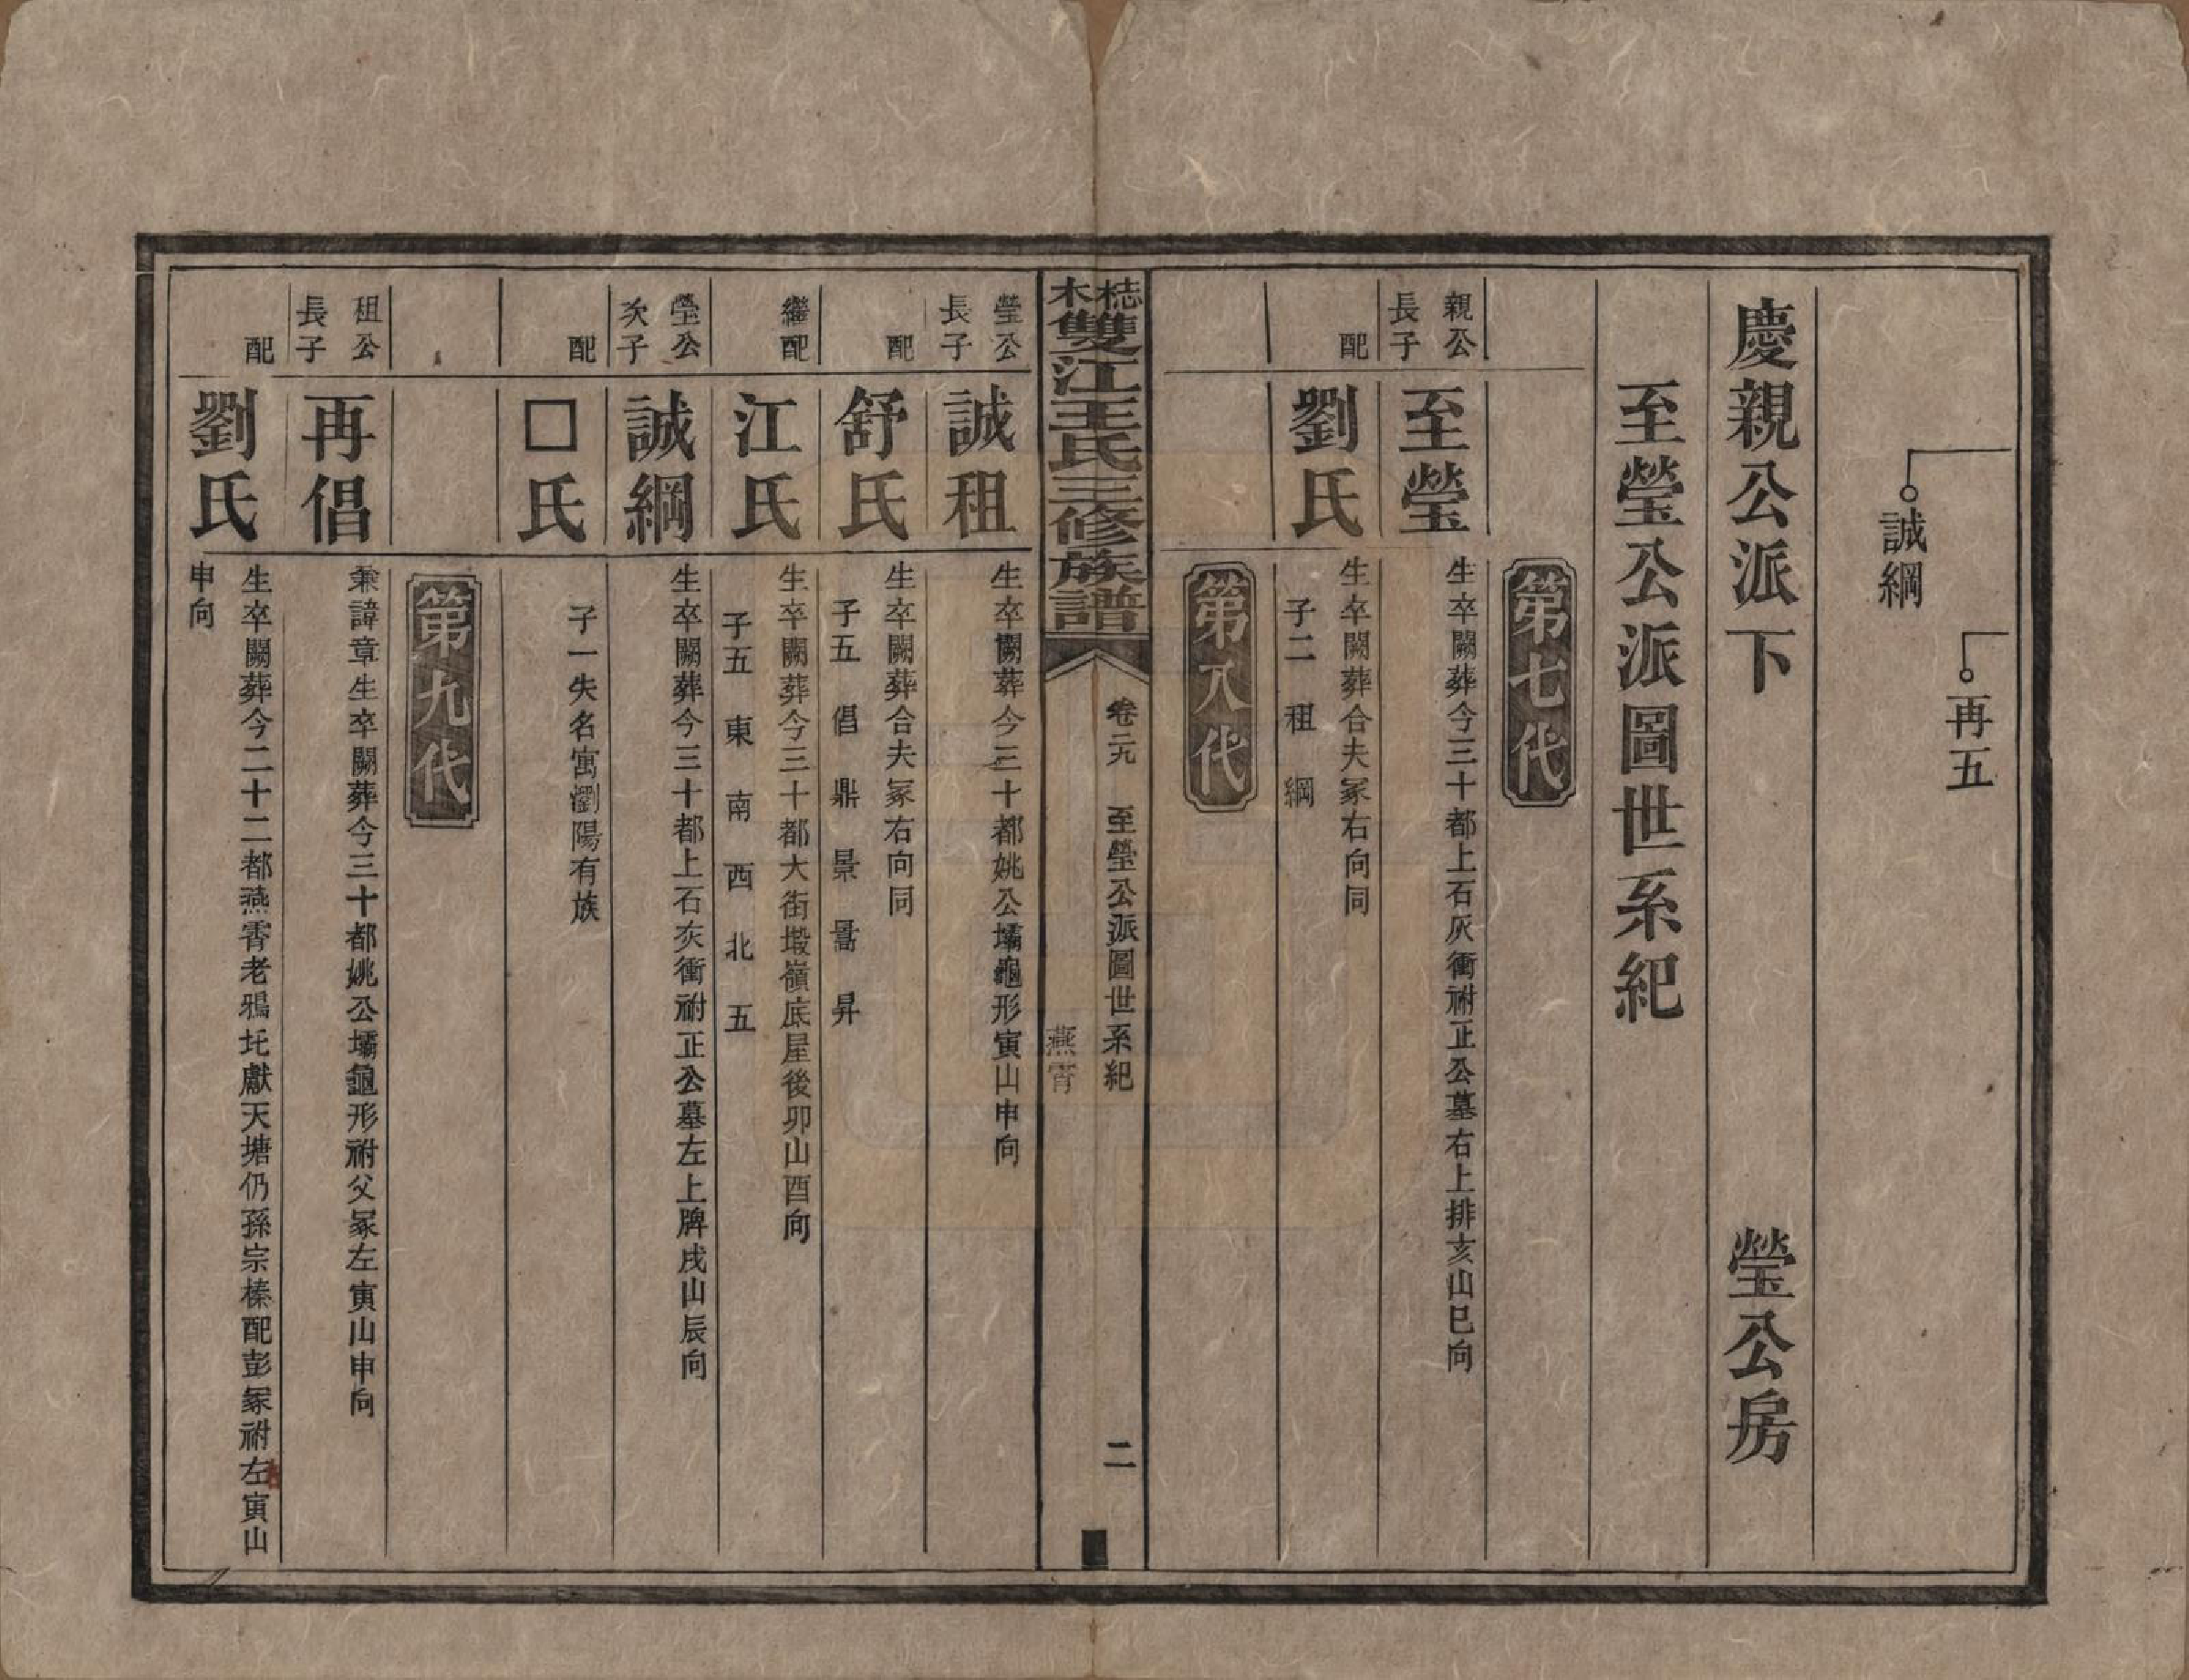 再五
誠綱
慶親公派下
瑩公房
至瑩公派圖世系紀
第七代
親公
長子
至瑩
生卒闕葬今三十都上石灰衝祔正公墓右上排亥山巳向
配
劉氏
生卒闕葬合夫冢右向同
子二 租 綱
第八代
梽木雙江王氏三修族譜
卷二九
至瑩公派圖世系紀
二
燕霄
瑩公
長子
誠租
生卒闕葬今三十都姚公壩龜形寅山申向
配
舒氏
生卒闕葬合夫冢右向同
子五 倡 鼎 景 暠 昇
繼配
江氏
生卒闕葬今三十都大街塅嶺底屋後卯山酉向
子五 東 南 西 北 五
瑩公
次子
誠綱
生卒闕葬今三十都上石灰衝祔正公墓左上牌戌山辰向
配
□氏
子一失名寓瀏陽有族
第九代
租公
長子
再倡
兼諱章生卒闕葬今三十都姚公壩龜形祔父冢左寅山申向
配
劉氏
生卒闕葬今二十二都燕霄老鴉圫獻天塘仍孫宗榛配彭冢祔左寅山
申向